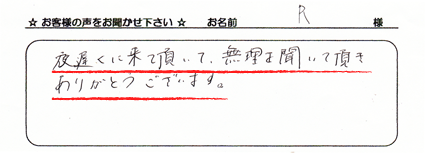 ☆ お客様の声をお聞かせ下さい ☆ お名前 R 様
夜遅くに来て頂いて、無理を聞いて頂き
ありがとうございます。